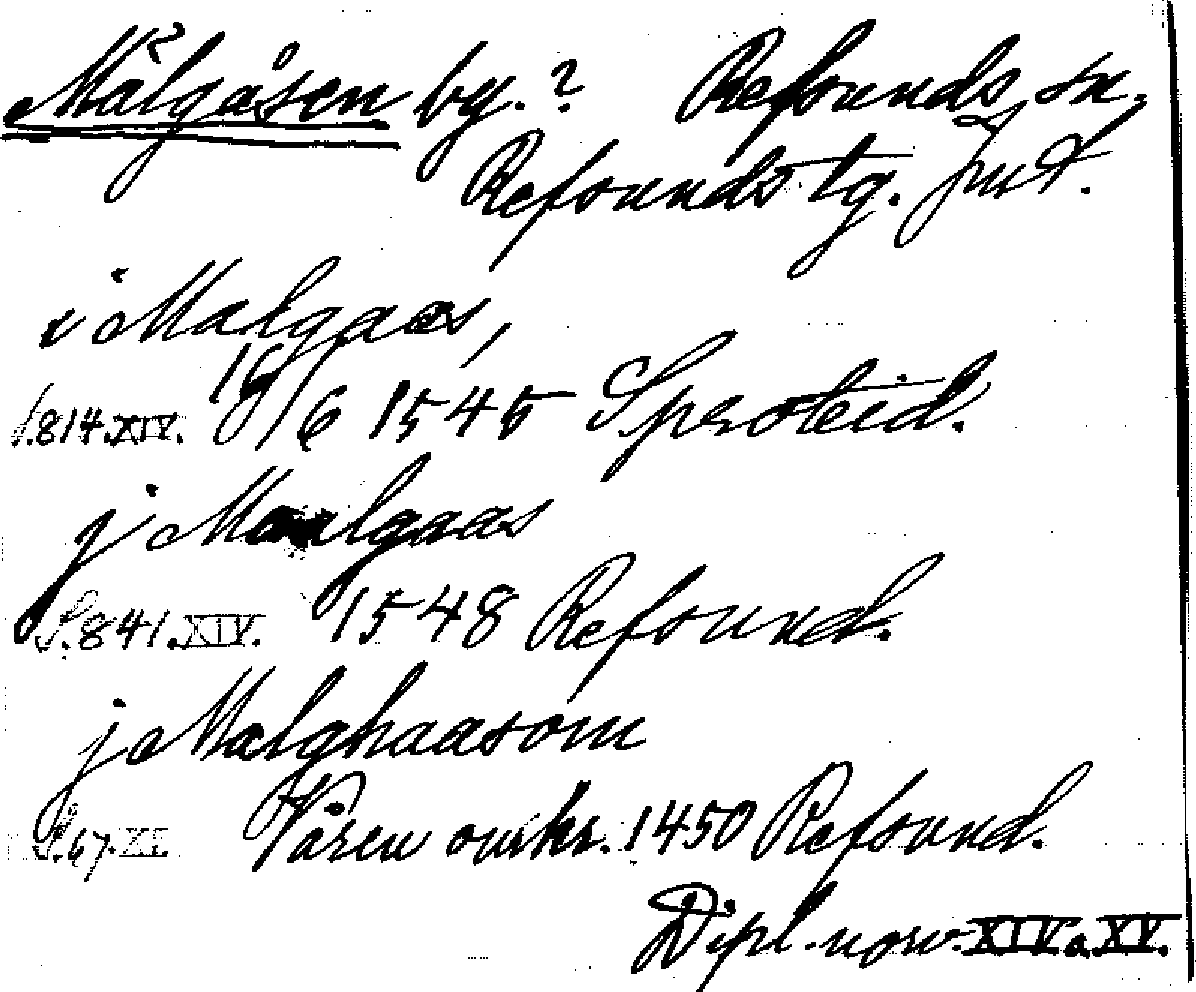 Målgåsen by.? Refsunds sn,
Refsunds tg. Jmt.
i Malgaas,
S.814.XIV. 16/6 1545 Sproteid.
j Maalgaas
S.841.XIV. 1548 Refsund.
j Malghaasom
S.67.XV. Våren omkr. 1450 Refsund.
Dipl. norv. XIV o. XV.